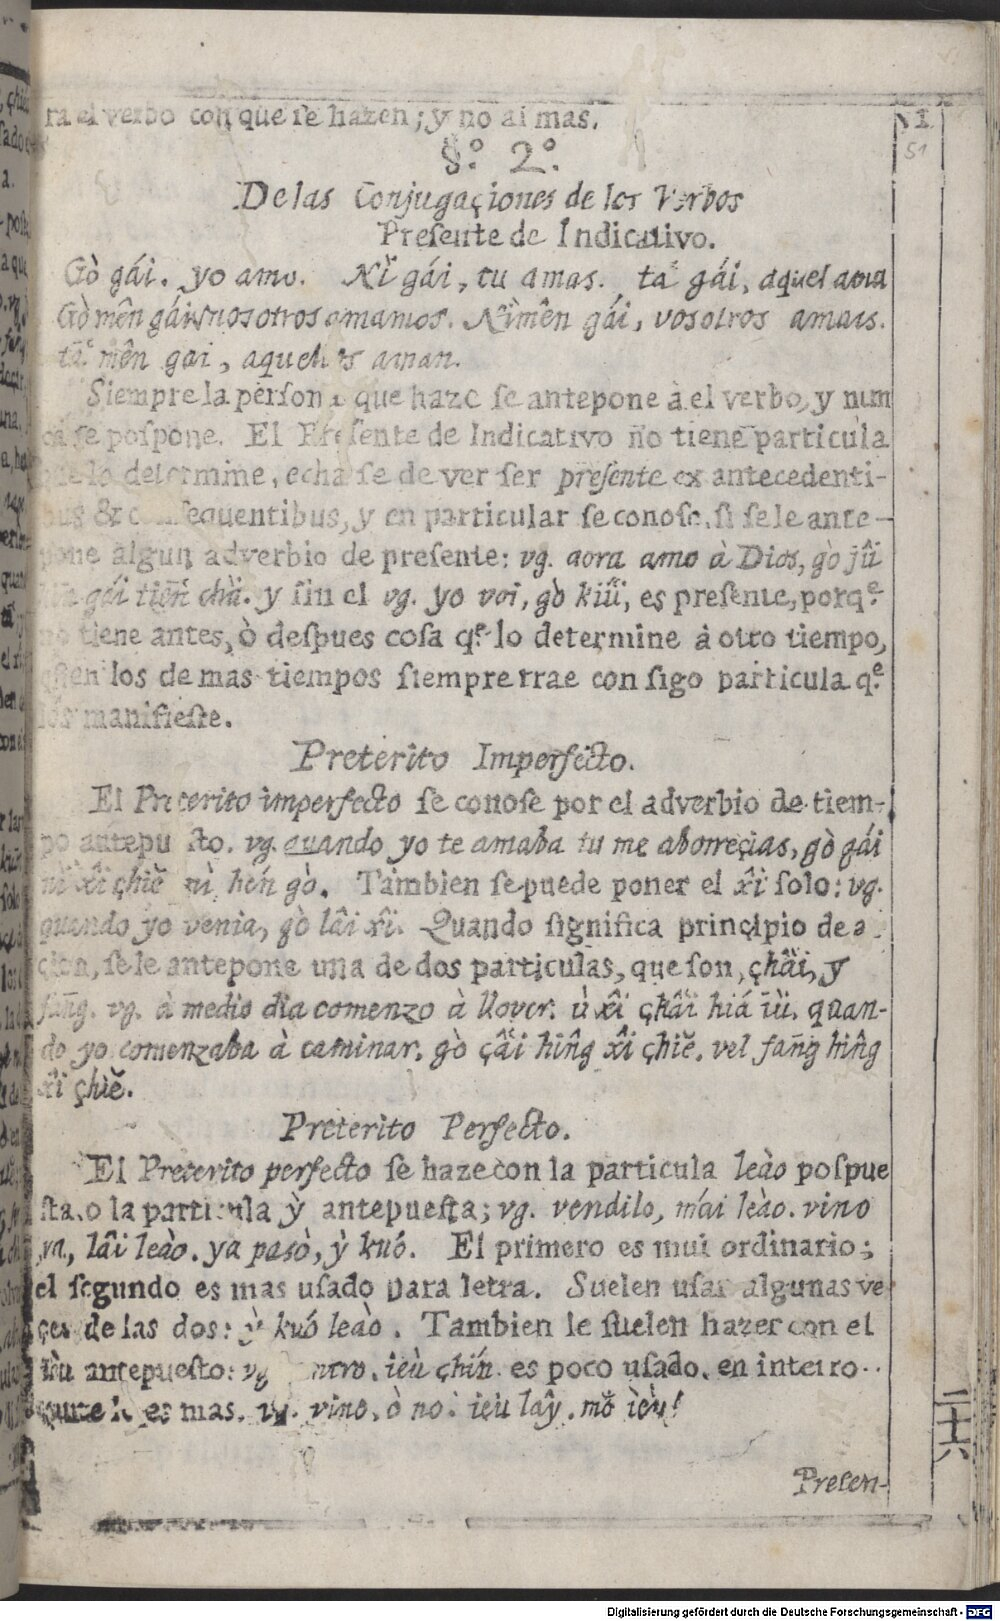 ra el verbo con que ſe hazen; y no al mas.
§.º 2.º
De las Conjugaçiones de los Verbos
Preſente de Indicativo.
Gò gái. yo amo. Nỉ gái, tu amas. ta gái, aquel ama
Gò mên gái, nosotros amamos. Nỉ mên gái, vosotros amais.
mên gai, aquellos aman.
Siempre la perſona que haze ſe antepone à el verbo, y nun
ca ſe poſpone. El Preſente de Indicativo no tiene particula
que lo determine, echaſe de ver ſer preſente ex antecedenti-
bus & conſequentibus, y en particular ſe conoſe, ſi ſe le ante-
pone algun adverbio de preſente: vg. aora amo à Dios, gò jû
gái chài. y ſin el vg. yo voi, gò es preſente, porq.e
no tiene antes, ò deſpues coſa q.e lo determine à otro tiempo,
los de mas tiempos ſiempre trae con ſigo particula q.e
los manifieſte.
Preterito Imperfecto.
El Preterito imperfecto ſe conoſe por el adverbio de tiem-
po antepueſto. vg. quando yo te amaba tu me aborreçias, gò gái
nỉ xî çhiě hén gò. Tambien ſe puede poner el xî ſolo: vg.
quando yo venia, gò lâi xî. Quando ſignifica prinçipio de a
çion, ſe le antepone una de dos particulas, que ſon, çhâi, y
fang. vg. à medio dia comenzo à llover. ù xî çhâi hiá iù. quan-
do yo comenzaba à caminar. gò çâi hing xî çhiě. vel fang hing
xî çhiě.
Preterito Perfecto.
El Preterito perfecto ſe haze con la particula leào poſpue
ſta, o la particula ỳ antepueſta; vg. vendilo, mái leào. vino
ya, lâi leào. ya pasò, ỳ kuó. El primero es mui ordinario;
el ſegundo es mas uſado para letra. Suelen uſar algunas ve
çes de las dos: ỳ kuó leào. Tambien le ſuelen hazer con el
ièu antepueſto: vg entro, ieù çhín. es poco uſado. en interro-
es mas. vg. vino, ò no: ièu lâŷ, mŏ ièu!
Preſen-
1
51
卄六
Digitalisierung gefördert durch die Deutsche Forschungsgemeinschaft - DFG